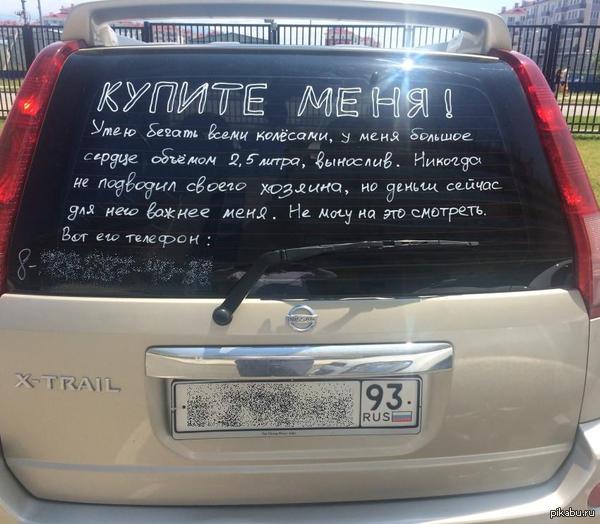 КУПИТЕ МЕНЯ!
Умею бегать всеми колёсами, у меня большое
сердце объёмом 2,5 литра, вынослив. Никогда
не подводил своего хозяина, но деньги сейчас
для него важнее меня. Не могу на это смотреть.
Вот его телефон:
8-
NISSAN
X-TRAIL
93
RUS
pikabu.ru